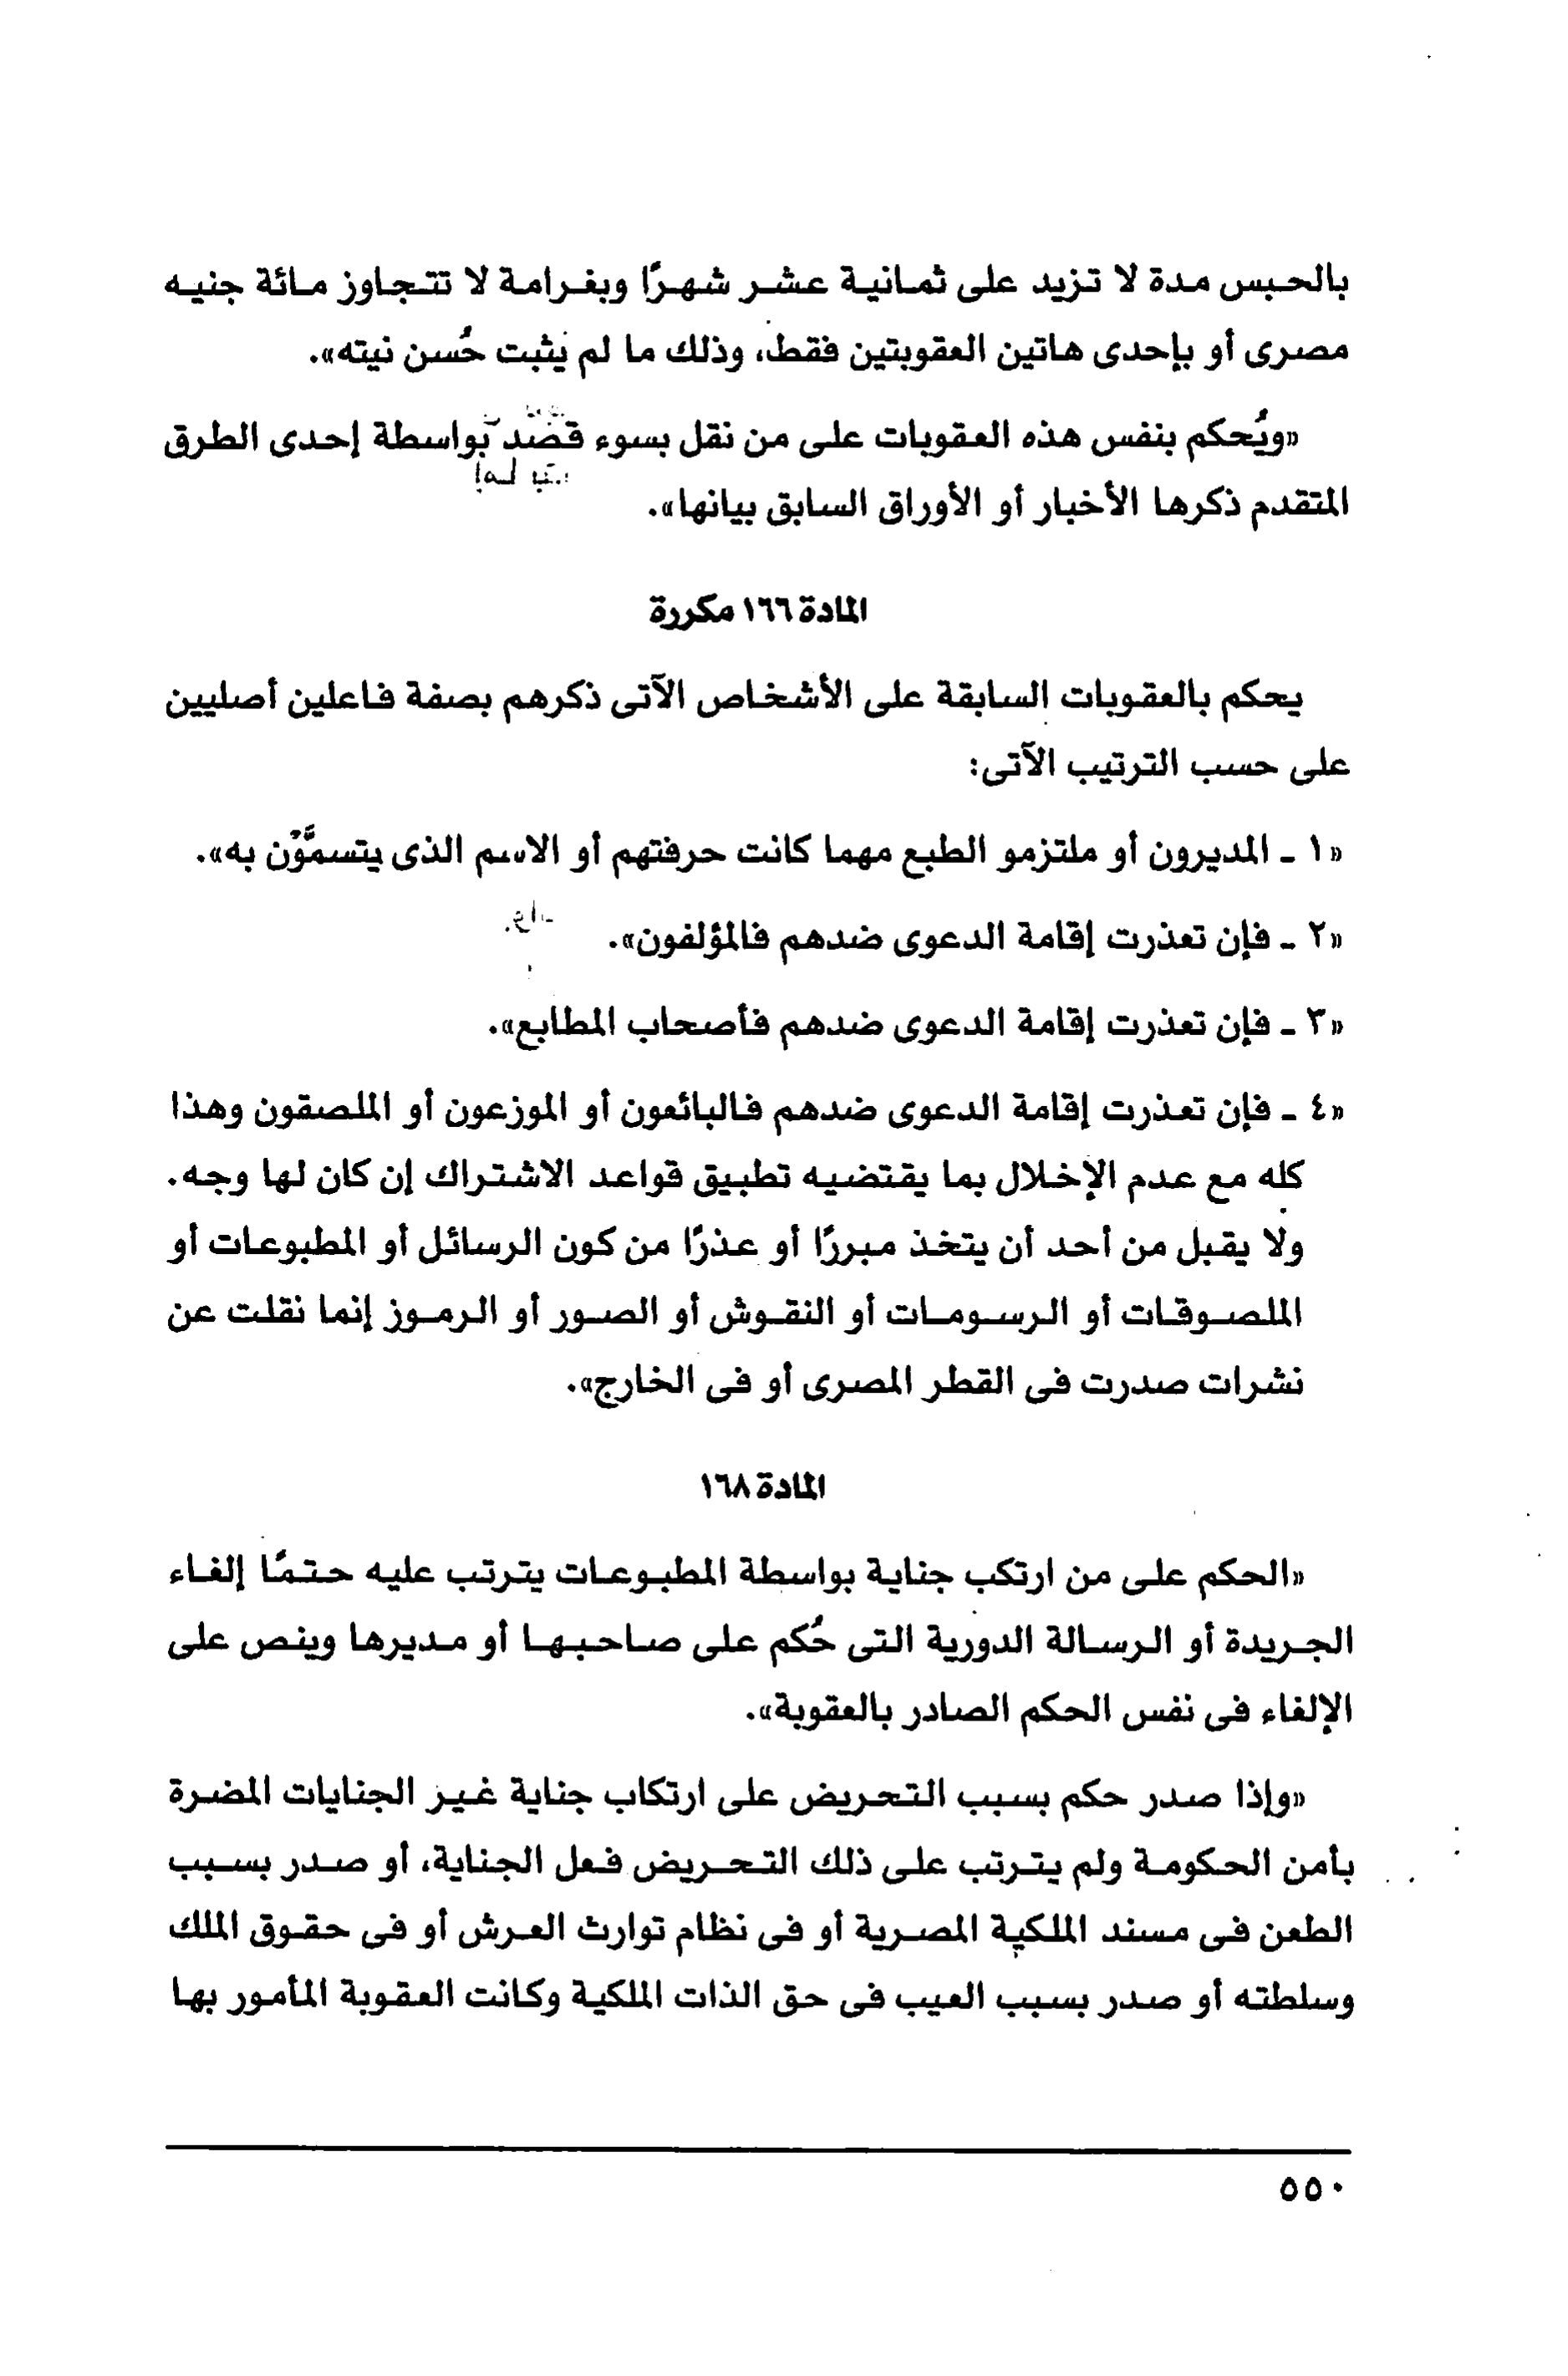 بالحبس مدة لا تزيد على ثمانية عشر شهرًا وبغرامة لا تتجاوز مائة جنيه
مصرى أو بإحدى هاتين العقوبتين فقط، وذلك ما لم يثبت حُسن نيته».
«ويُحكم بنفس هذه العقوبات على من نقل بسوء قصد بواسطة إحدى الطرق
المتقدم ذكرها الأخبار أو الأوراق السابق بيانها».
المادة ١٦٦ مكررة
يحكم بالعقوبات السابقة على الأشخاص الآتى ذكرهم بصفة فاعلين أصليين
على حسب الترتيب الآتى:
«١ - المديرون أو ملتزمو الطبع مهما كانت حرفتهم أو الاسم الذى يتسمَّوْن به».
«٢ - فإن تعذرت إقامة الدعوى ضدهم فالمؤلفون».
«٣ - فإن تعذرت إقامة الدعوى ضدهم فأصحاب المطابع».
«٤ - فإن تعذرت إقامة الدعوى ضدهم فالبائعون أو الموزعون أو الملصقون وهذا
كله مع عدم الإخلال بما يقتضيه تطبيق قواعد الاشتراك إن كان لها وجه.
ولا يقبل من أحد أن يتخذ مبررًا أو عذرًا من كون الرسائل أو المطبوعات أو
الملصوقات أو الرسومات أو النقوش أو الصور أو الرموز إنما نقلت عن
نشرات صدرت فى القطر المصرى أو فى الخارج».
المادة ١٦٨
«الحكم على من ارتكب جناية بواسطة المطبوعات يترتب عليه حتمًا إلغاء
الجريدة أو الرسالة الدورية التى حُكم على صاحبها أو مديرها وينص على
الإلغاء فى نفس الحكم الصادر بالعقوبة».
«وإذا صدر حكم بسبب التحريض على ارتكاب جناية غير الجنايات المضرة
بأمن الحكومة ولم يترتب على ذلك التحريض فعل الجناية، أو صدر بسبب
الطعن فى مسند الملكية المصرية أو فى نظام توارث العرش أو فى حقوق الملك
وسلطته أو صدر بسبب العيب فى حق الذات الملكية وكانت العقوبة المأمور بها
٥٥٠